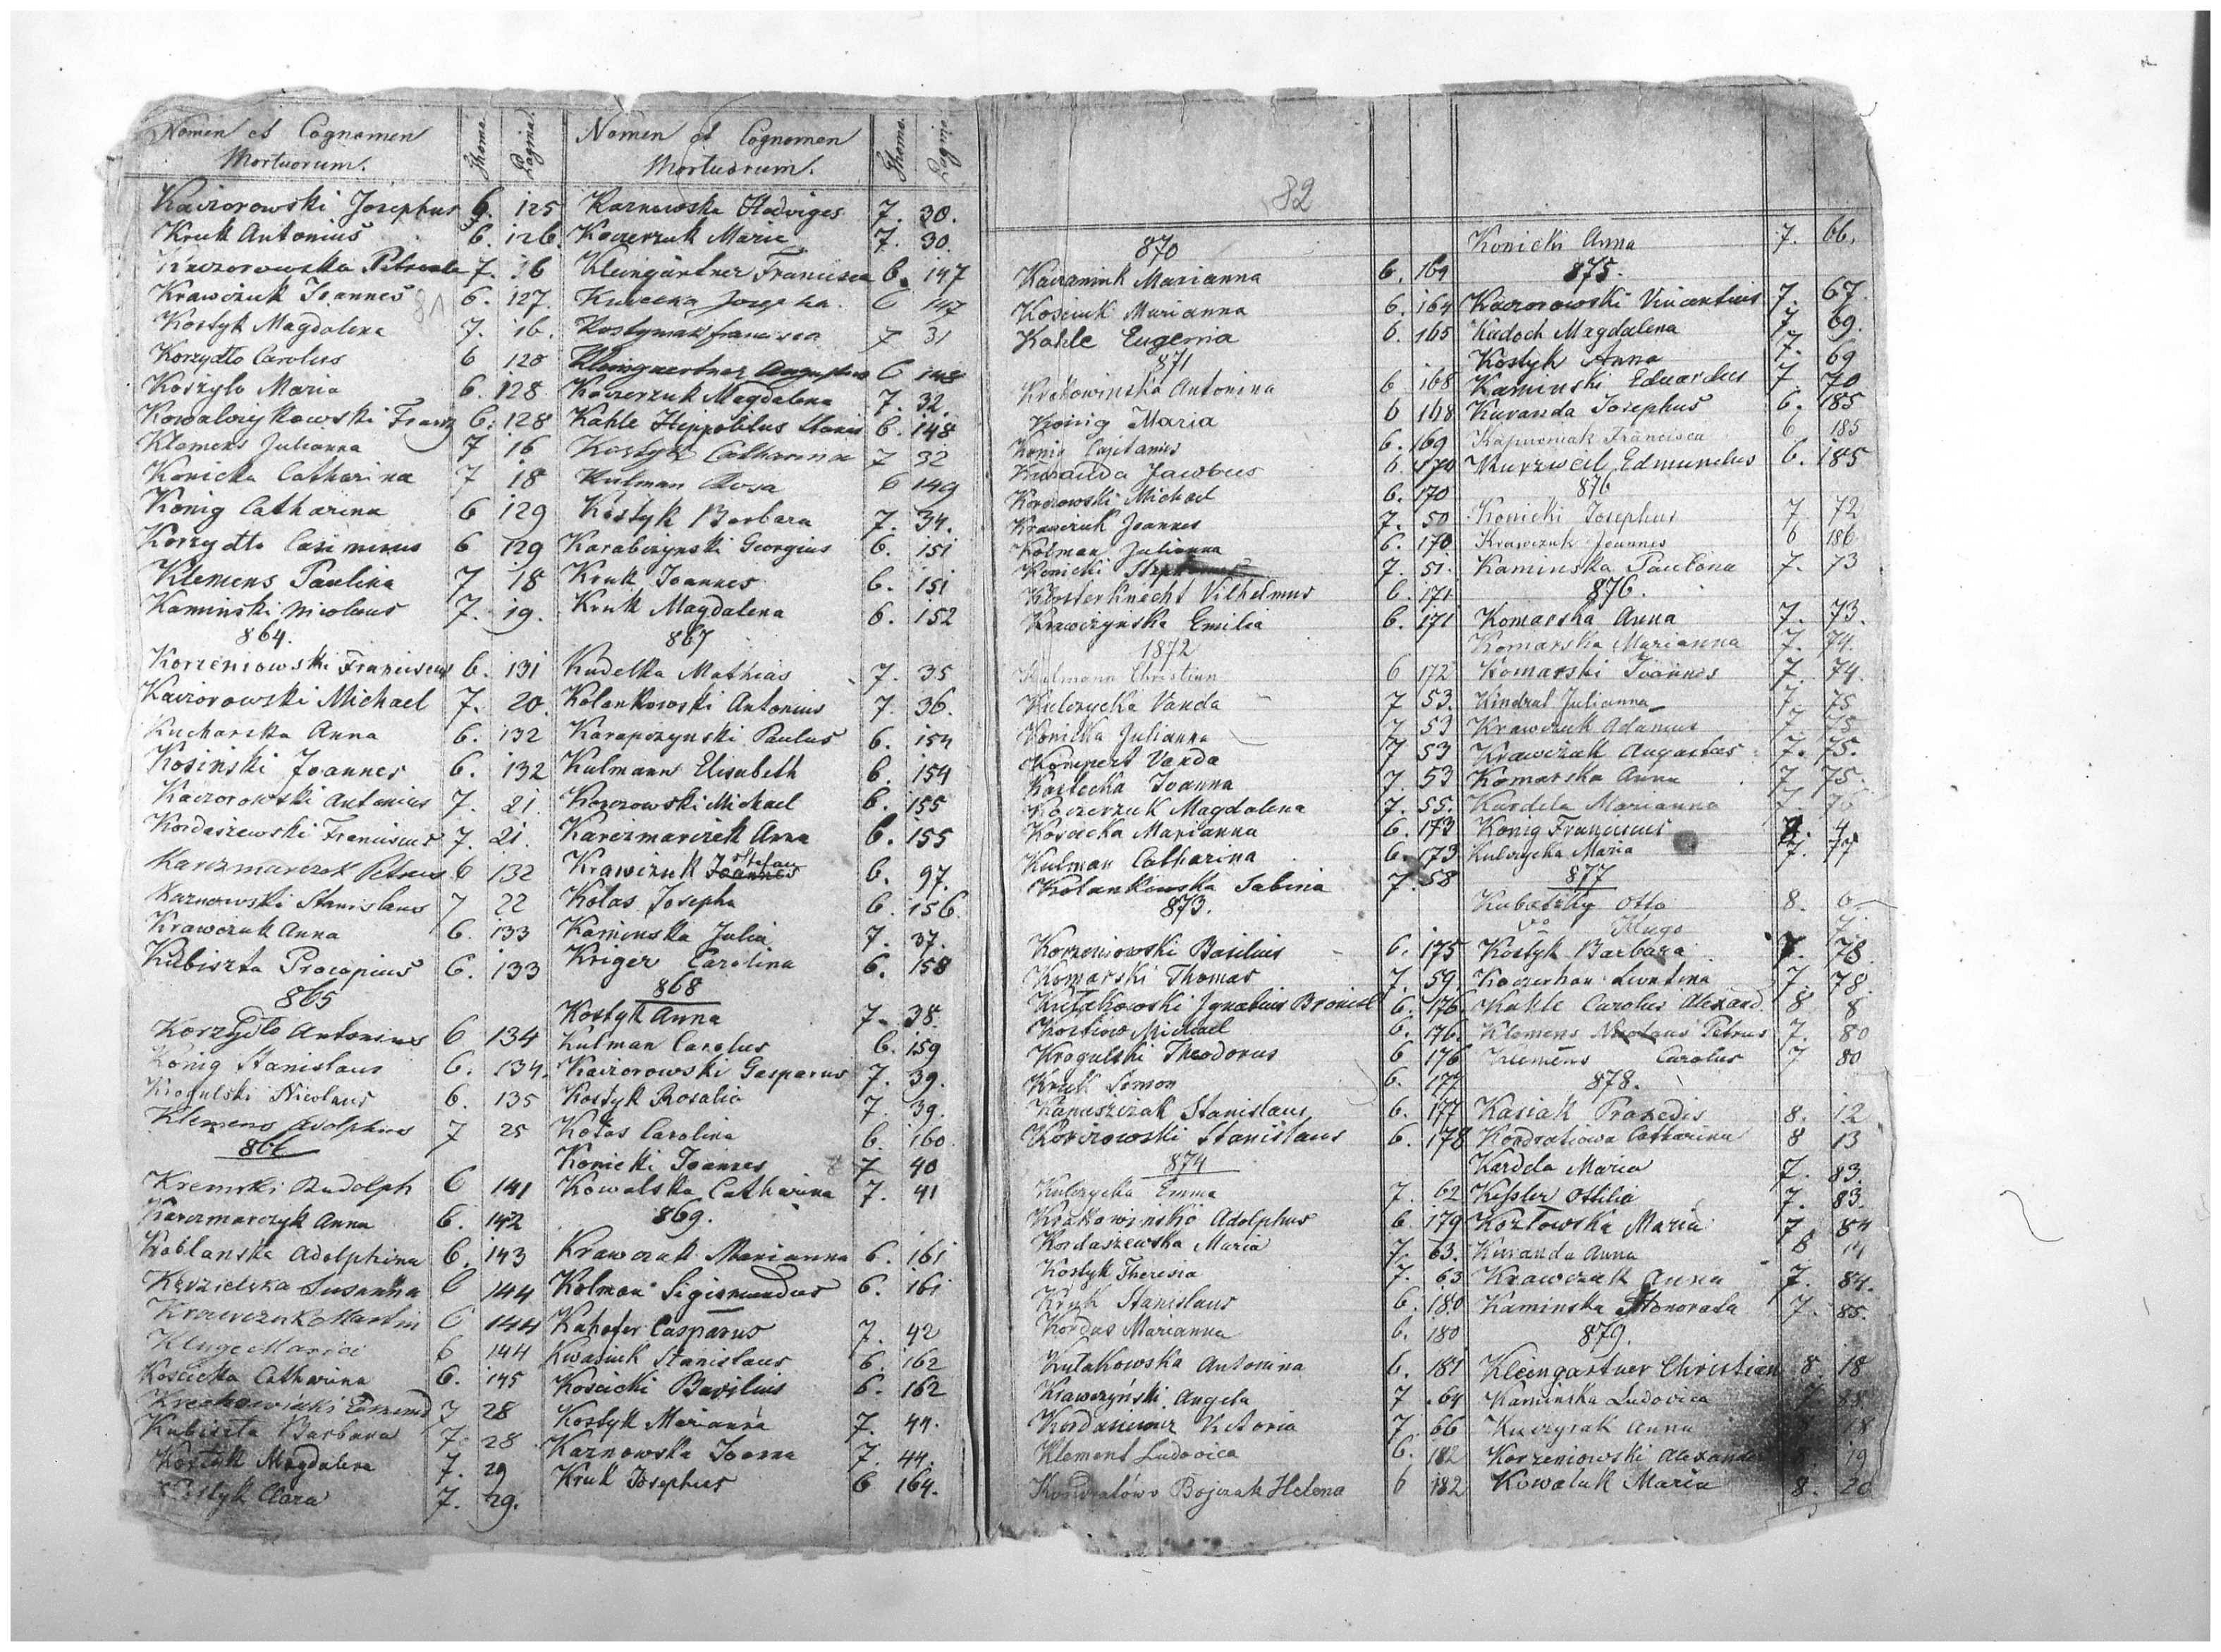 Nomen et Cognomen Mortuorum.
Thoma.
Pagina.
Kaczorowski Josephus 6. 125
Kruk Antonius 6. 126.
Kaczorowska Petronela 7. 16
Krawczuk Joannes 6. 127.
81
Kostyk Magdalena 7. 16.
Korzydło Carolus 6 128
Koszyło Maria 6. 128.
Kowalczykowski Franz 6. 128
Klemens Julianna 7 16
Konicka Catharina 7 18
König Catharina 6 129
Korzydło Casimirus 6 129
Klemens Paulina 7 18
Kaminski Nicolaus 7. 19.
864.
Korzeniowski Franciscus 6. 131
Kaczorowski Michael 7. 20.
Kucharska Anna 6. 132
Kosinski Joannes 6. 132
Kaczorowski Antonius 7. 21.
Kordaszewski Franciscus 7. 21.
Karczmarczok Petrus 6 132
Karnowski Stanislaus 7 22
Krawczuk Anna 6. 133
Kubiszta Procopius 6. 133
865
Korzydło Antonius 6 134
König Stanislaus 6. 134.
Krogulski Nicolaus 6. 135
Klemens Adolphus 7 25
866
Kremski Rudolph 6 141
Karczmarczyk Anna 6. 142
Koblanska Adolphina 6. 143
Kędzielska Susanna 6 144
Krawczuk Martin 6 144
Kluge Maria 6 144
Koscicka Catharina 6. 145
7 28
Kubiszta Barbara 7. 28
Kostyk Magdalena 7. 29
Kostyk Clara 7. 29.
Nomen et Cognomen Mortuorum.
Thoma.
Pagina
Karnowska Hedviges 7. 30.
Kaczerzuk Maria 7. 30.
Kleingärtner Francisca 6. 147
Kulecka Josepha 6 147
Kostyniak Francisca 7 31
Kleingaertner Augustus 6 148
Kaczerzuk Magdalena 7. 32.
Kahle Hippolitus Stanis 6. 148
Kostyk Catharina 7 32
Kulman Rosa 6 149
Kostyk Barbara 7. 34.
Karabczynski Georgius 6. 151
Kruk Joannes 6. 151
Kruk Magdalena 6. 152
867
Kudelka Mathias 7. 35
Kolankowski Antonius 7. 36.
Karapczynski Paulus 6. 154
Kulmann Elisabeth 6. 154
Korczowski Michael 6. 155
Karczmarczek Anna 6. 155
Stefan
Krawczuk Joannes 6. 97.
Kolas Josepha 6. 156.
Kaminska Julia 7. 37.
Kriger Carolina 6. 158
868
Kostyk Anna 7. 38.
Kulman Carolus 6. 159
Kaczorowski Gasparus 7. 39.
Kostyk Rosalia 7. 39.
Kolas Carolina 6. 160
Konicki Joannes 7 40
Kowalska Catharina 7. 41
869.
Krawczuk Marianna 6. 161
Kolman Sigismundus 6. 161
Kahofer Casparus 7. 42
Kwasiuk Stanislaus 6. 162
Koscicki Basilius 6. 162
Kostyk Marianna 7. 44.
Karnowska Joanna 7. 44.
Kruk Josephus 6 164.
82
870
Kaczaniuk Marianna 6. 164
Kosciuk Marianna 6. 164
Kahle Eugenia 6. 165
871
Krakowinska Antonina 6 168
König Maria 6 168
König Capitanus 6. 169
Kuranda Jacobus 6. 170
Korczowski Michael 6. 170
Krawczuk Joannes 7. 50
Kolman Julianna 6. 170
Konicki 7. 51.
Klosterknecht Vilhelmus 6. 171
Krawczynska Emilia 6. 171
1872
Kulmann Christian 6 172
Kulczycka Vanda 7 53.
Konicka Julianna 7 53
Kompert Vanda 7 53
Kostecka Joanna 7. 53
Kaczerzuk Magdalena 7. 55.
Koscicka Marianna 6. 173
Kulman Catharina 6. 173
Kolankowska Sabina 7. 58
873.
Korzeniowski Basilius 6. 175
Komarski Thomas 7. 59.
Kulakowski Ignatius Bronisl 6. 176.
Kostiow Michael 6. 176.
Krogulski Theodorus 6 176
Kruk Simon 6. 177
Kapuszczak Stanislaus 6. 177
Korczowski Stanislaus 6. 178
874
Kulczycka Emma 7. 62
Krakowinski Adolphus 6. 179
Kordaszewska Maria 7. 63.
Kostyk Theresia 7. 63
Kruk Stanislaus 6. 180
Kordas Marianna 6. 180
Kułakowska Antonina 6. 181
Krawczyński Angela 7 64
Victoria 7. 66
Klement Ludovica 6. 182
Bojczak Helena 6 182
Konicki Anna 7. 66.
875.
Kaczorowski Vincentius 7. 67.
Kudoch Magdalena 7 69.
Kostyk Anna 7. 69
Kaminski Eduardus 7. 70
Kuranda Josephus 6. 185
Kapuśniak Francisca 6 185
Kurzweil Edmundus 6. 185
876
Konicki Josephus 7 72
Krawczuk Joannes 6 186
Kaminska Paulina 7. 73
876.
Komarska Anna 7. 73.
Komarska Marianna 7. 74.
Komarski Joannes 7. 74.
Kindrat Julianna 7 75
Krawczuk Adamus 7 75
Krawczuk Augustus 7. 75.
Komarska Anna 7 75.
Kardela Marianna 7.
König Franciscus 4.
Kulczycka Maria 7. 77
877
Kubatzky Otto 8. 6
do Hugo 7.
Kostyk Barbara 7. 78
Kaczerhan Leontina 7. 78.
Kahle Carolus Alexand. 8 8
Klemens Nicolaus Petrus 7. 80
Klemens Carolus 7 80
878.
Kasiak Praxedis 8. 12
Kondratiowa Catharina 8 13
Kardela Maria 7. 83.
Kessler Ottilia 7. 83.
Kozłowska Maria 7 84
Kuranda Anna 8 14
Krawczuk Anna 7. 84.
Kaminska Honorata 7. 85.
879.
Kleingartner Christian 8. 18
Kaminska Ludovica 7. 88.
Anna 18
Korzeniowski Alexander 19
Kowaluk Maria 8. 20